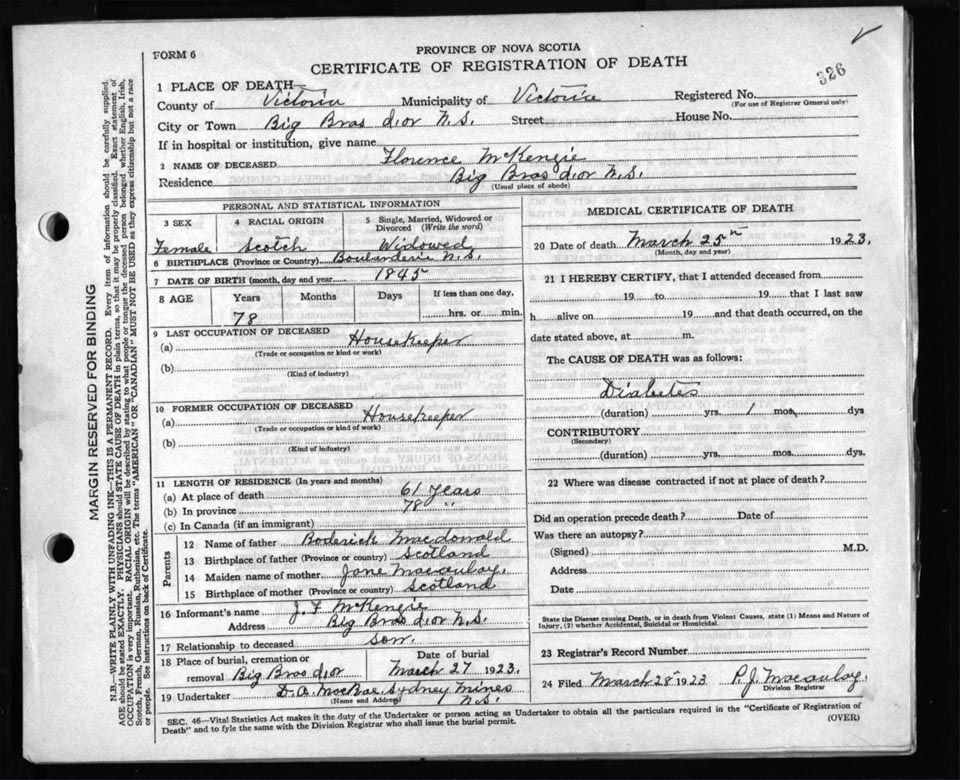 FORM 6
PROVINCE OF NOVA SCOTIA
CERTIFICATE OF REGISTRATION OF DEATH
326
1 PLACE OF DEATH
County of Victoria Municipality of Victoria Registered No.
(For use of Registrar General only)
City or Town Big Bras d'or N.S. Street House No.
If in hospital or institution, give name
2 NAME OF DECEASED Florence McKenzie
Residence Big Bras d'or N.S.
(Usual place of abode)
PERSONAL AND STATISTICAL INFORMATION
3 SEX 4 RACIAL ORIGIN 5 Single, Married, Widowed or Divorced (Write the word)
Female Scotch Widowed
6 BIRTHPLACE (Province or Country) Boularderie N.S.
7 DATE OF BIRTH (month, day and year) 1845
8 AGE Years Months Days If less than one day,
78 hrs. or min.
9 LAST OCCUPATION OF DECEASED
(a) Housekeeper
(Trade or occupation or kind or work)
(b)
(Kind of industry)
10 FORMER OCCUPATION OF DECEASED
(a) Housekeeper
(Trade or occupation or kind of work)
(b)
(Kind of industry)
11 LENGTH OF RESIDENCE (In years and months)
(a) At place of death 61 Years
(b) In province 78 "
(c) In Canada (if an immigrant)
Parents
12 Name of father Roderick Macdonald
13 Birthplace of father (Province or country) Scotland
14 Maiden name of mother Jane Macaulay
15 Birthplace of mother (Province or country) Scotland
16 Informant's name J. F. McKenzie
Address Big Bras d'or N.S.
17 Relationship to deceased Son.
18 Place of burial, cremation or removal Big Bras d'or Date of burial March 27 1923.
19 Undertaker D. A. MacRae, Sydney Mines N.S.
(Name and Address)
MEDICAL CERTIFICATE OF DEATH
20 Date of death March 25th 1923.
(Month, day and year)
21 I HEREBY CERTIFY, that I attended deceased from
19 to 19 that I last saw
h alive on 19 and that death occurred, on the
date stated above, at m.
The CAUSE OF DEATH was as follows:
Diabetes
(duration) yrs. 1 mos. dys
CONTRIBUTORY
(Secondary)
(duration) yrs. mos. dys.
22 Where was disease contracted if not at place of death?
Did an operation precede death? Date of
Was there an autopsy?
(Signed) M.D.
Address
Date
State the Disease causing Death, or in death from Violent Causes, state (1) Means and Nature of
Injury, (2) whether Accidental, Suicidal or Homicidal.
23 Registrar's Record Number
24 Filed March 28th 1923 P. J. Macaulay.
Division Registrar
SEC. 46—Vital Statistics Act makes it the duty of the Undertaker or person acting as Undertaker to obtain all the particulars required in the "Certificate of Registration of
Death" and to fyle the same with the Division Registrar who shall issue the burial permit. (OVER)
MARGIN RESERVED FOR BINDING
N.B.—WRITE PLAINLY WITH UNFADING INK—THIS IS A PERMANENT RECORD. Every item of information should be carefully supplied.
AGE should be stated EXACTLY. PHYSICIANS should STATE CAUSE OF DEATH in plain terms, so that it may be properly classified. Exact statement of
OCCUPATION is very important. RACIAL ORIGIN will be described by stating to what people or tongue the deceased person belonged whether English, Irish,
Scotch, French, German, Russian, Ruthenian, etc. The terms "AMERICAN" OR "CANADIAN" MUST NOT BE USED as they express citizenship but not a race
or people. See instructions on back of Certificate.